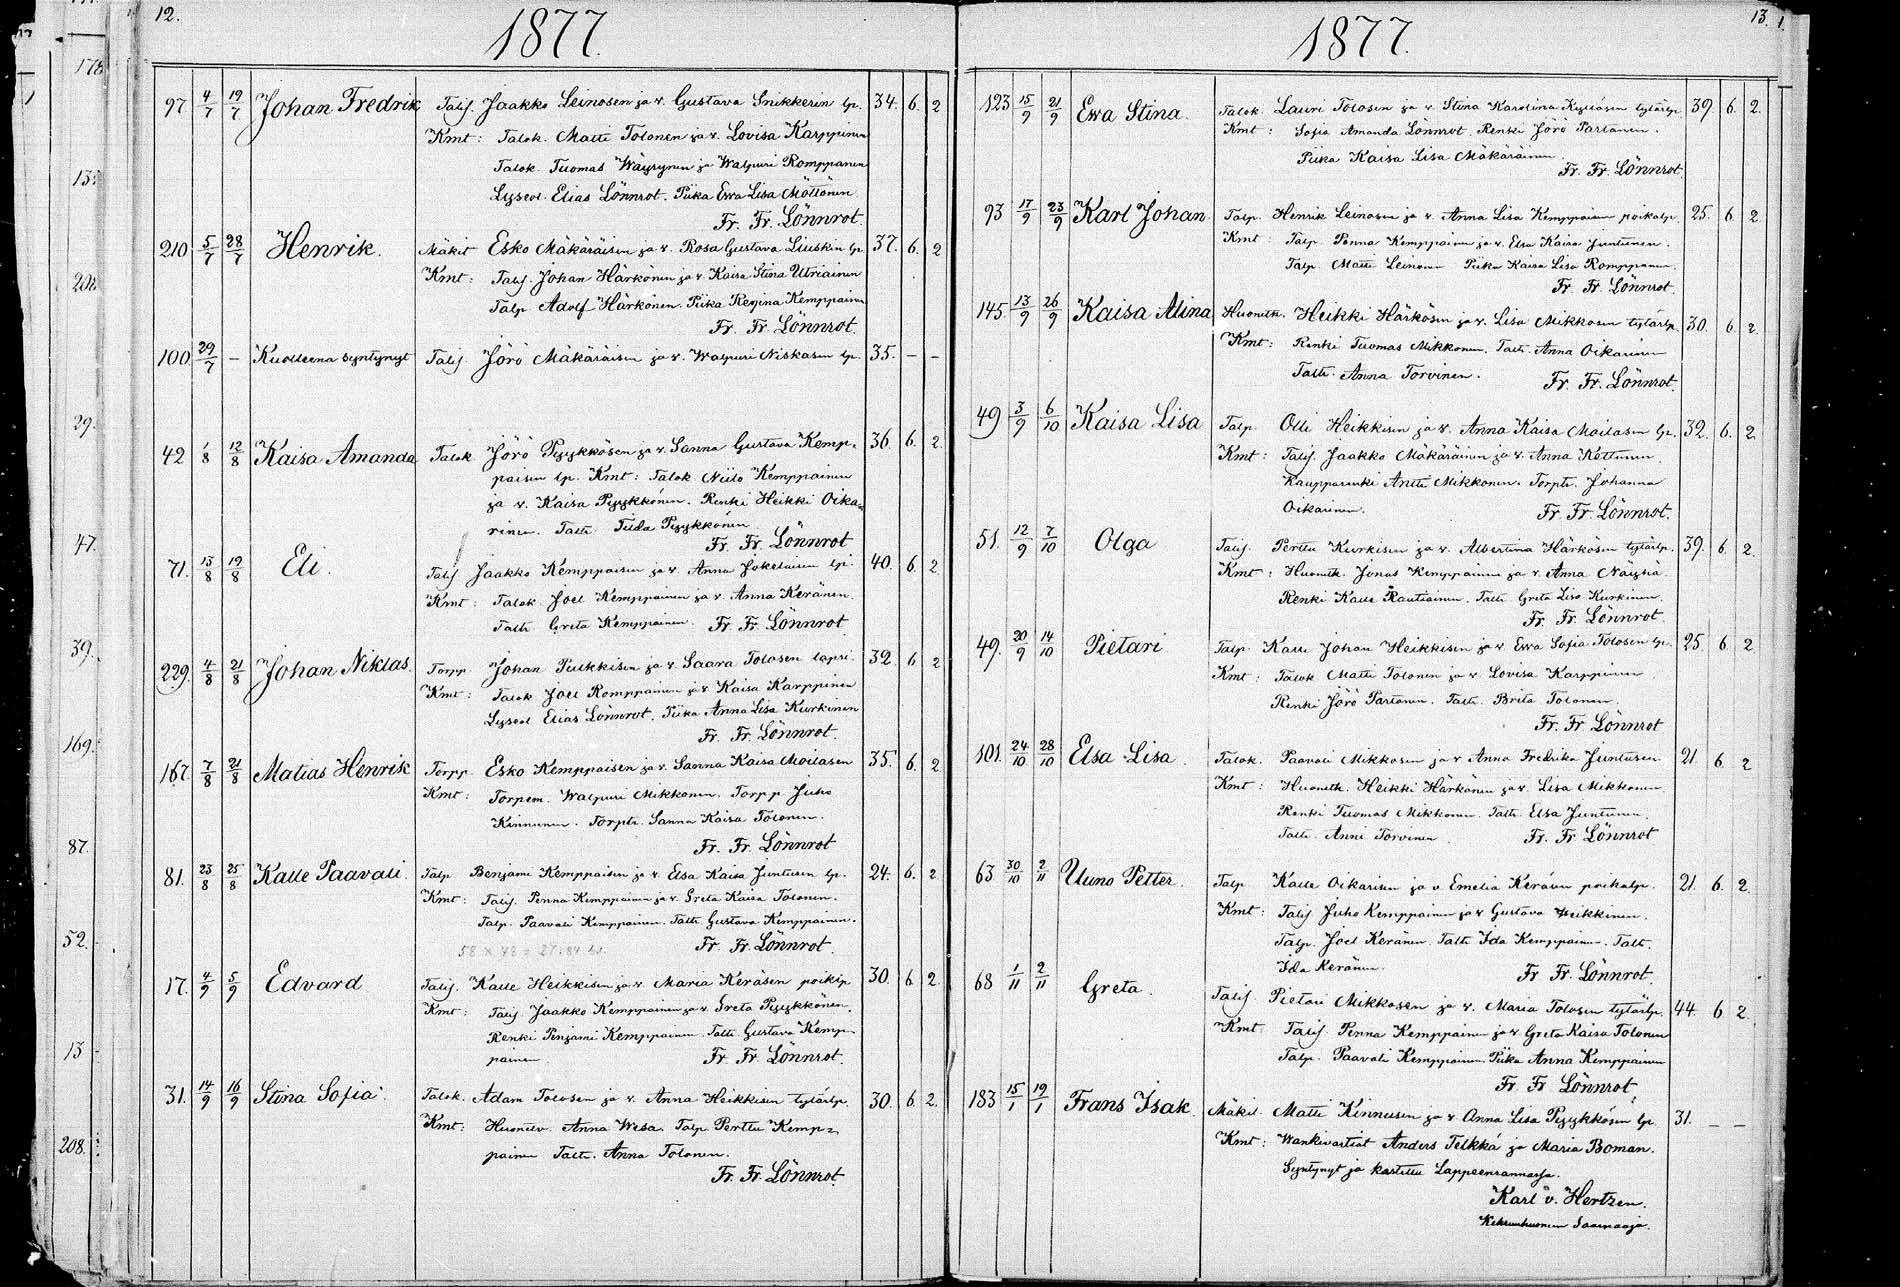 12.
1877.
97 4/7 19/7 Johan Fredrik Talij. Jaakko Leinosen ja v. Gustava Snikkerin lp. 34. 6. 2
Kmt: Talok. Matti Tolonen ja v. Lovisa Karppinen
Talok. Tuomas Wäyrynen ja Walpuri Romppanen
Lyseol. Elias Lönnrot. Piika Ewa Lisa Möttönen
Fr. Fr. Lönnrot.
210 5/7 28/7 Henrik. Mäkit Esko Mäkäräisen ja v. Rosa Gustava Liuskin lp. 37. 6. 2
Kmt: Talij. Johan Härkönen ja v. Kaisa Stina Utriainen
Talp. Adolf Härkönen. Piika Regina Kemppainen
Fr. Fr. Lönnrot.
100 29/7 – Kuolleena syntynyt Talij Jörö Mäkäräisen ja v. Walpuri Niskasen lp. 35. – –
42 1/8 12/8 Kaisa Amanda Talok Jörö Pyykkösen ja v. Sanna Gustava Kemp- 36 6. 2.
paisen lp. Kmt: Talok Niilo Kemppainen
ja v. Kaisa Pyykkönen. Renki Heikki Oika-
rinen. Taltr Tilda Pyykkönen
Fr. Fr. Lönnrot
71. 13/8 19/8 Eli. Talij Jaakko Kemppaisen ja v. Anna Jokelaisen lp. 40. 6. 2
Kmt: Talok. Joel Kemppainen ja v. Anna Keränen.
Taltr Greta Kemppainen. Fr. Fr. Lönnrot
229. 4/8 21/8 Johan Niklas. Torpp Johan Pulkkisen ja v. Saara Tolosen lapsi. 32. 6 2
Kmt: Talok Joel Romppainen ja v. Kaisa Karppinen
Lyseol Elias Lönnrot. Piika Anna Lisa Kurkinen
Fr. Fr. Lönnrot.
167. 7/8 21/8 Matias Henrik Torpp. Esko Kemppaisen ja v. Sanna Kaisa Moilasen 35. 6. 2
Kmt: Torpem. Walpuri Mikkonen. Torpp Juho
Kinnunen. Torptr. Sanna Kaisa Tolonen.
Fr. Fr. Lönnrot
81. 23/8 25/8 Kalle Paavali. Talp Benjami Kemppaisen ja v. Elsa Kaisa Juntusen lp. 24. 6. 2
Kmt: Talij. Penna Kemppainen ja v. Greta Kaisa Tolonen.
Talp. Paavali Kemppainen. Taltr Gustava Kemppainen.
Fr. Fr. Lönnrot.
17. 4/9 5/9 Edvard Talij. Kalle Heikkisen ja v. Maria Keräsen poiklp 30 6 2.
Kmt: Talij Jaakko Kemppainen ja v. Greta Pyykkönen.
Renki Penjami Kemppainen. Taltr Gustava Kemp-
painen. Fr. Fr. Lönnrot
31. 14/9 16/9 Stina Sofia. Talok. Adam Tolosen ja v. Anna Heikkisen tytärlp. 30. 6. 2.
Kmt: Anna Wesa. Talp. Perttu Kemp-
painen Taltr. Anna Tolonen.
Fr. Fr. Lönnrot.
13.
1877.
123 15/9 21/9 Ewa Stina. Talok. Lauri Tolosen ja v. Stina Karolina Kyllösen tytärlp. 39. 6 2.
Kmt: Sofia Amanda Lönnrot. Renki Jörö Partanen.
Piika Kaisa Lisa Mäkäräinen
Fr. Fr. Lönnrot.
93 17/9 23/9 Karl Johan. Talp. Henrik Leinosen ja v. Anna Lisa Kemppaisen poikalp. 25. 6 2
Kmt: Talp. Penna Kemppainen ja v. Elsa Kaisa Juntunen.
Talp Matti Leinonen Piika Kaisa Lisa Romppanen.
Fr. Fr. Lönnrot.
145. 13/9 26/9 Kaisa Alina Huonem. Heikki Härkösen ja v. Lisa Mikkosen tytärlp. 30. 6 2.
Kmt: Renki Tuomas Mikkonen. Taltr. Anna Oikarinen
Taltr. Anna Torvinen. Fr. Fr. Lönnrot.
49 3/9 6/10 Kaisa Lisa Talp. Olli Heikkisen ja v. Anna Kaisa Moilasen lp. 32. 6. 2
Kmt: Talij Jaakko Mäkäräinen ja v. Anna Kettunen.
Kaupparenki Antti Mikkonen. Torptr. Johanna
Oikarinen. Fr. Fr. Lönnrot.
51. 12/9 7/10 Olga Talij. Perttu Kurkisen ja v. Albertina Härkösen tytärlp. 39. 6 2.
Kmt: Jonas Kemppainen ja v. Anna
Renki Kalle Rautiainen. Taltr Greta Lisa Kurkinen.
Fr. Fr. Lönnrot
49. 20/9 14/10 Pietari Talp. Kalle Johan Heikkisen ja v. Ewa Sofia Tolosen lp. 25. 6 2
Kmt: Talok Matti Tolonen ja v. Lovisa Karppinen.
Renki Jörö Partanen. Taltr. Brita Tolonen.
Fr. Fr. Lönnrot
101. 24/10 28/10 Elsa Lisa Talok. Paavali Mikkosen ja v. Anna Fredrika Juntusen 21 6 2
Kmt: Heikki Härkönen ja v. Lisa Mikkonen.
Renki Tuomas Mikkonen. Taltr Elsa Juntunen.
Taltr. Anni Torvinen Fr. Fr. Lönnrot
63 30/10 2/11 Uuno Petter. Talp Kalle Oikarisen ja v Emelia Keräsen poikalp. 21. 6. 2.
Kmt: Talij Juho Kemppainen ja v Gustava Heikkinen.
Talp. Joel Keränen. Taltr Ida Kemppainen. Taltr.
Ida Keränen. Fr. Fr. Lönnrot.
68 1/11 2/11 Greta. Talij Pietari Mikkosen ja v. Maria Tolosen tytärlp. 44 6 2
Kmt Talij. Pinna Kemppainen ja v. Greta Kaisa Tolonen
Talp. Paavali Kemppainen. Piika Anna Kemppainen
Fr. Fr. Lönnrot.
183 15/1 19/1 Frans Isak. Mäkit. Matti Kinnusen ja v. Anna Lisa Pyykkösen lp. 31. – –
Kmt: Wankivartiat Anders Telkkä ja Maria Boman.
Syntynyt ja kastettu Lappeenrannassa.
Karl v. Hertzen.
Kehruuhuoneen Saarnaaja.
178
29.
47.
39.
169.
87.
52.
13
208.